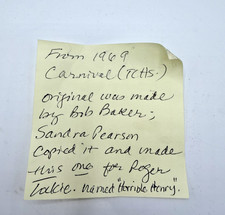 From 1969
Carnival (TCHS.)
original was made
by Bob Baker;
Sandra Pearson
Copied it and made
this one for Roger
named "Horrible Henry".